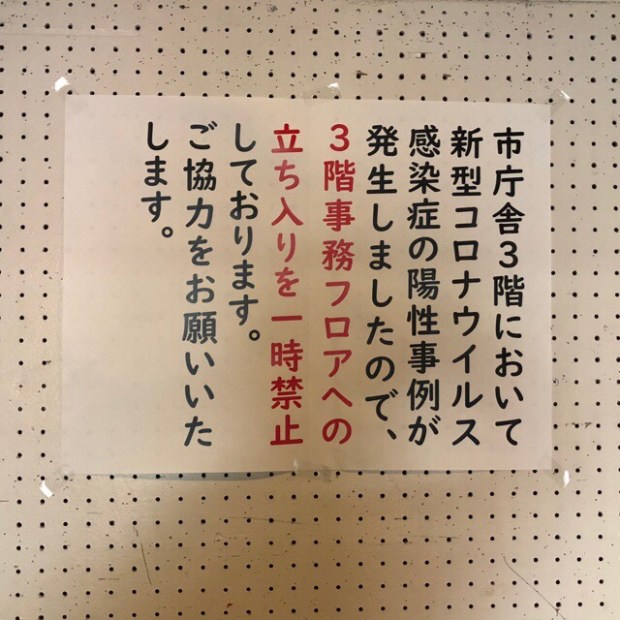 市庁舎３階において
新型コロナウイルス
感染症の陽性事例が
発生しましたので、
３階事務フロアへの
立ち入りを一時禁止
しております。
ご協力をお願いいた
します。